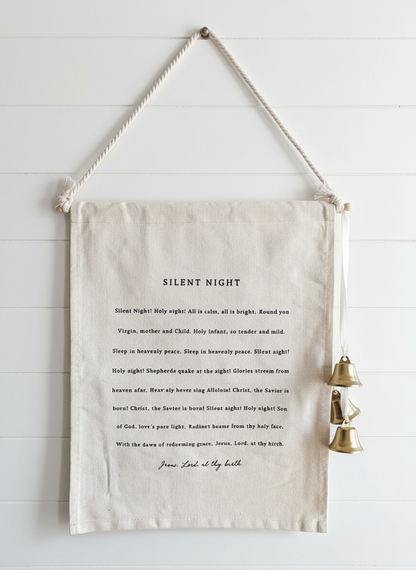 SILENT NIGHT
Silent Night! Holy night! All is calm, all is bright. Round yon
Virgin, mother and Child. Holy Infant, so tender and mild.
Sleep in heavenly peace. Sleep in heavenly peace. Silent night!
Holy night! Shepherds quake at the sight! Glories streem from
heaven afar. Heav'aly hevee sing Alloluia! Christ, the Savier is
born! Christ, the Savier is bora! Silent aight! Holy sight! Son
of God, love's pure light. Radinet beams from thy holy face.
With the dawn of redeeming grace, Jesus, Lord, at thy birch.
Jesus, Lord, at thy birth